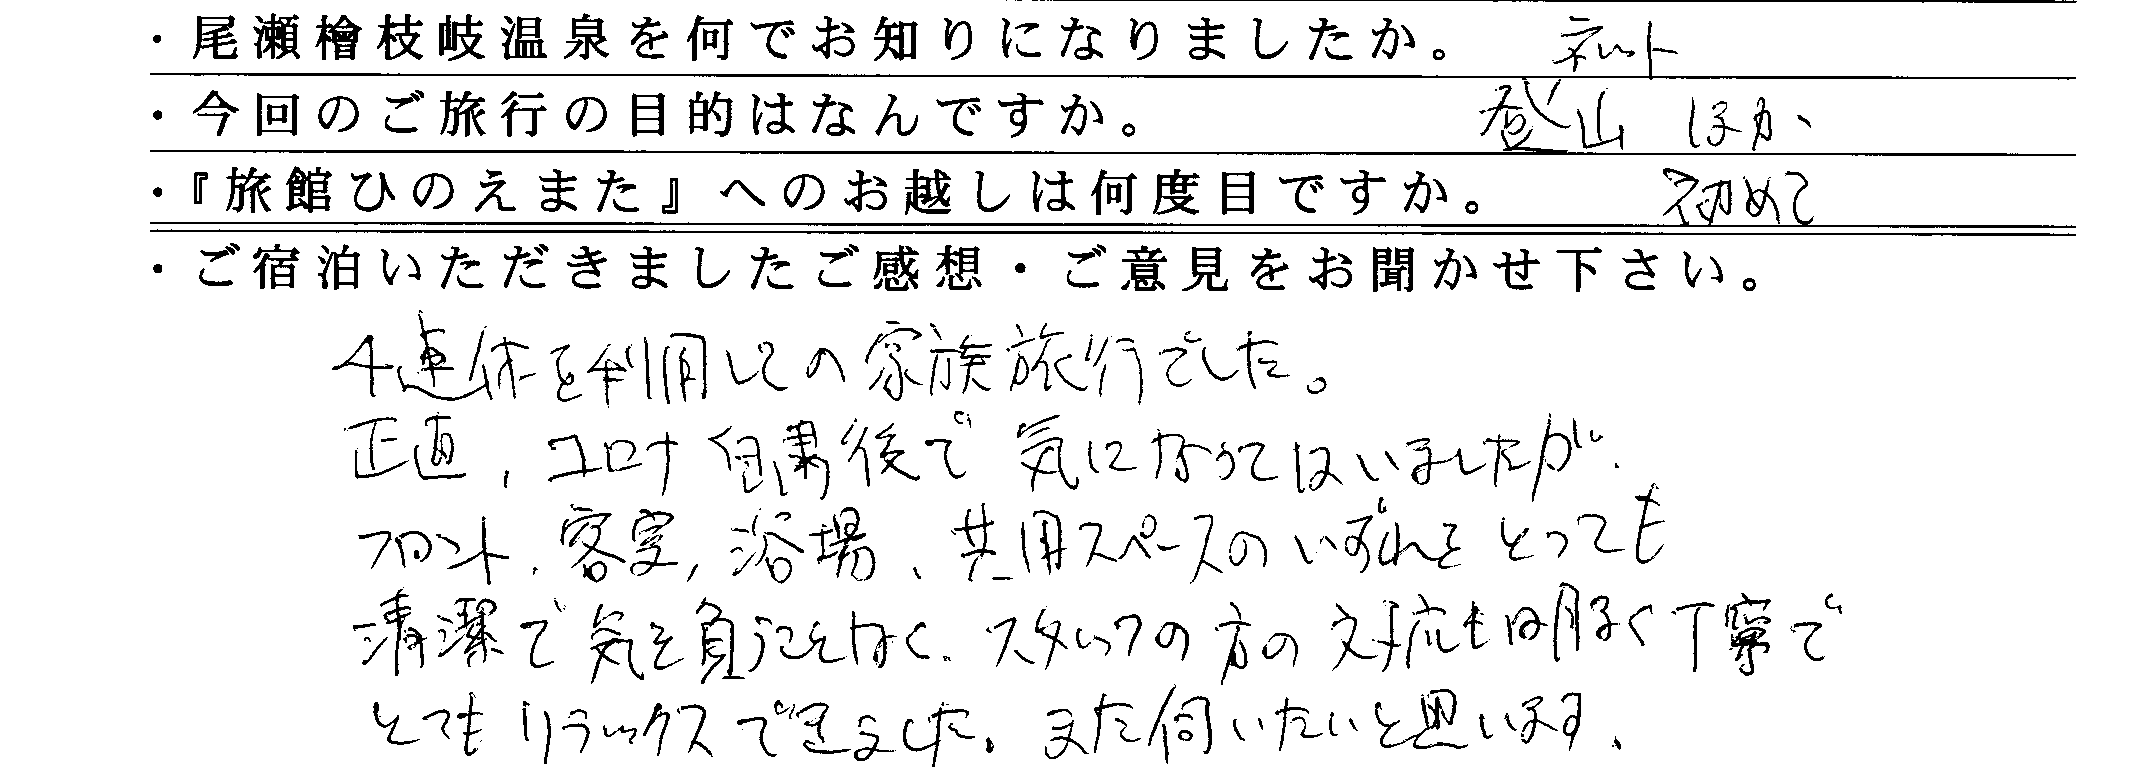 ・尾瀬檜枝岐温泉を何でお知りになりましたか。 ネット
・今回のご旅行の目的はなんですか。 登山 ほか
・『旅館ひのえまた』へのお越しは何度目ですか。 初めて
・ご宿泊いただきましたご感想・ご意見をお聞かせ下さい。
4連休を利用しての家族旅行でした。
正直、コロナ自粛後で気になってはいましたが、
フロント、客室、浴場、共用スペースのいずれをとっても
清潔で気を負うことなく、スタッフの方の対応も明るく丁寧で
とてもリラックスできました。また伺いたいと思います。